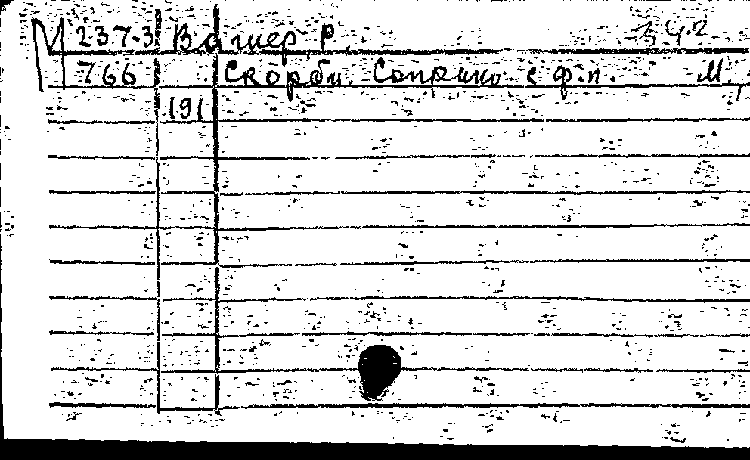 М 237-3 Вагнер Р. 342
766 Скорби. Сопрано с ф.п. М.,
191